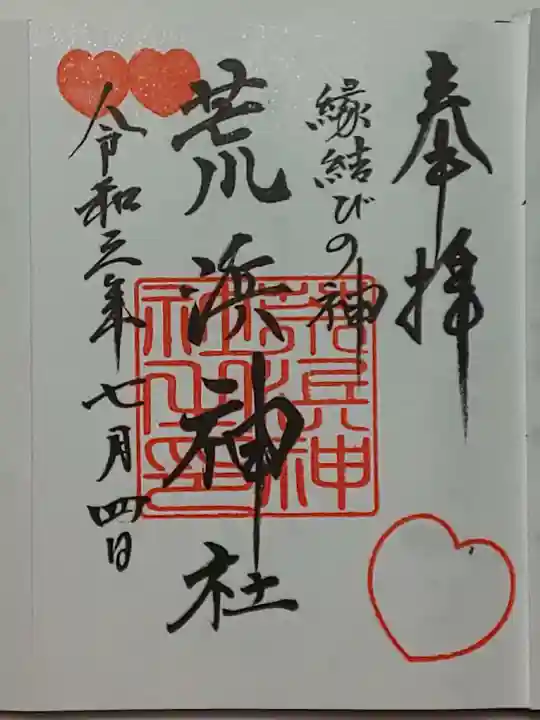 奉拝
縁結びの神
荒浜神社
令和三年七月四日
荒浜神
社之印